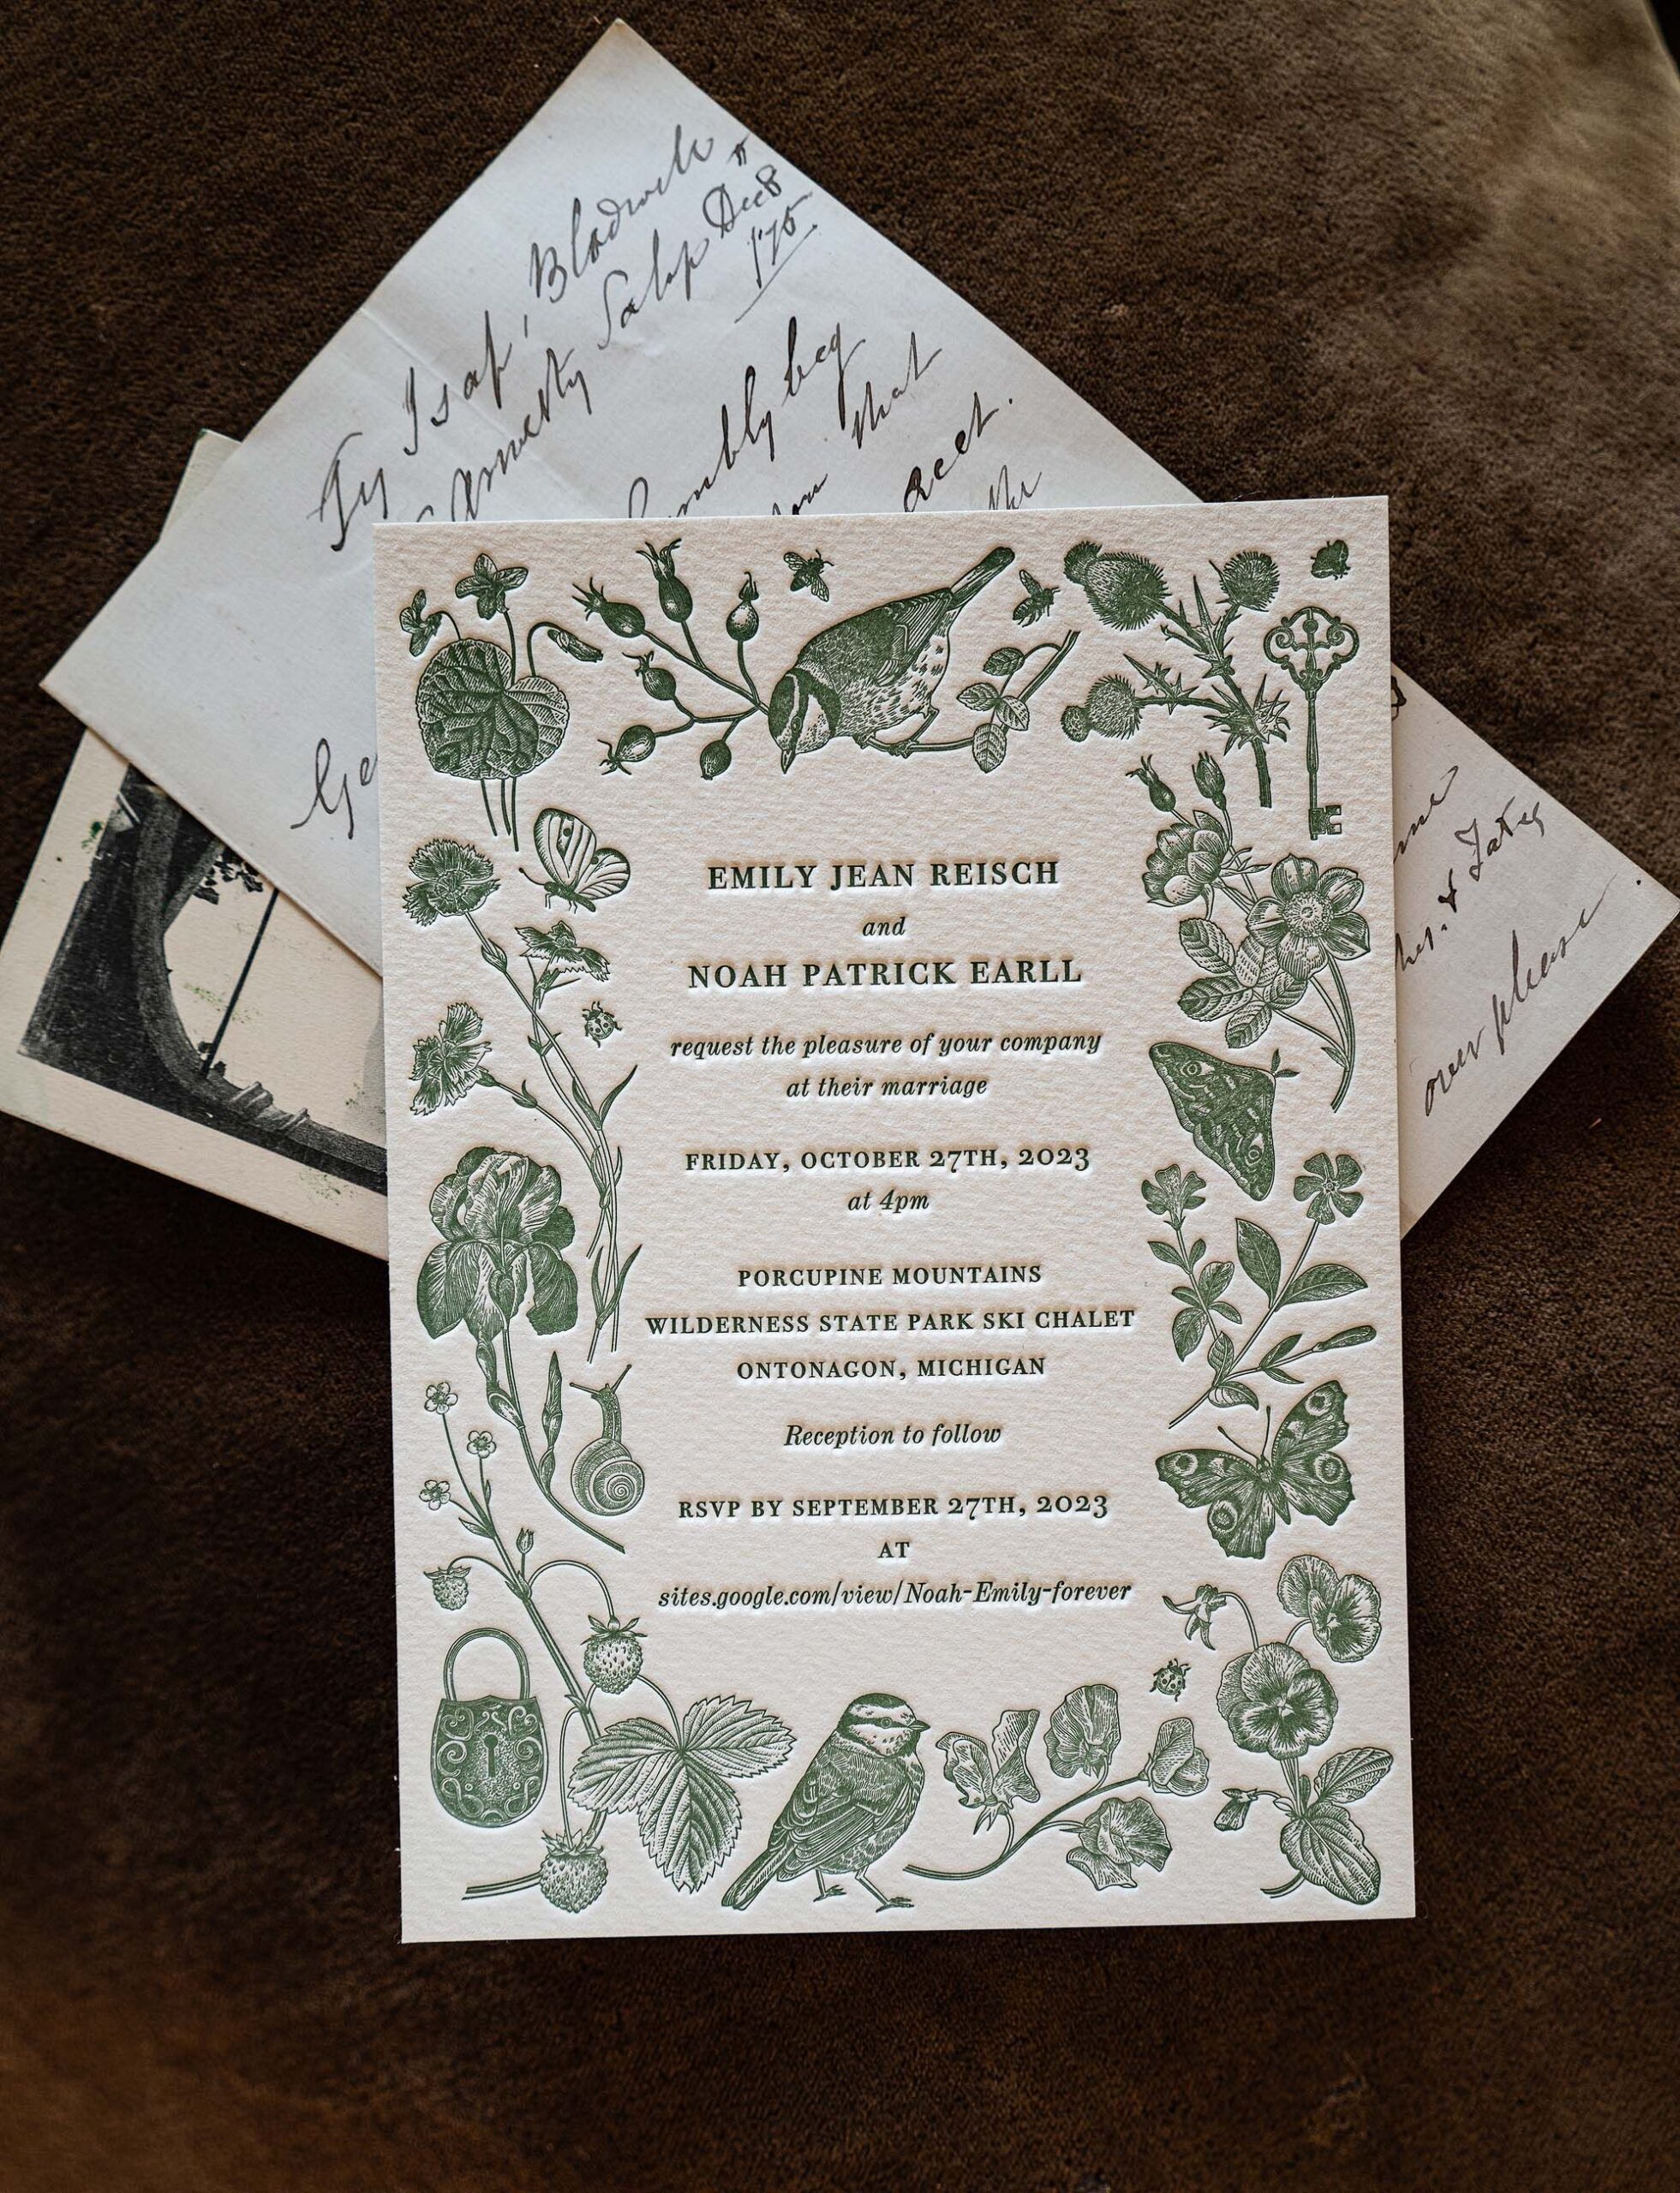 Ty Isaf, Blodwell
Oswestry Salop Dec 8
175
humbly beg
you that
Rect.
the
Ge
over please
EMILY JEAN REISCH
and
NOAH PATRICK EARLL
request the pleasure of your company
at their marriage
FRIDAY, OCTOBER 27TH, 2023
at 4pm
PORCUPINE MOUNTAINS
WILDERNESS STATE PARK SKI CHALET
ONTONAGON, MICHIGAN
Reception to follow
RSVP BY SEPTEMBER 27TH, 2023
AT
sites.google.com/view/Noah-Emily-forever